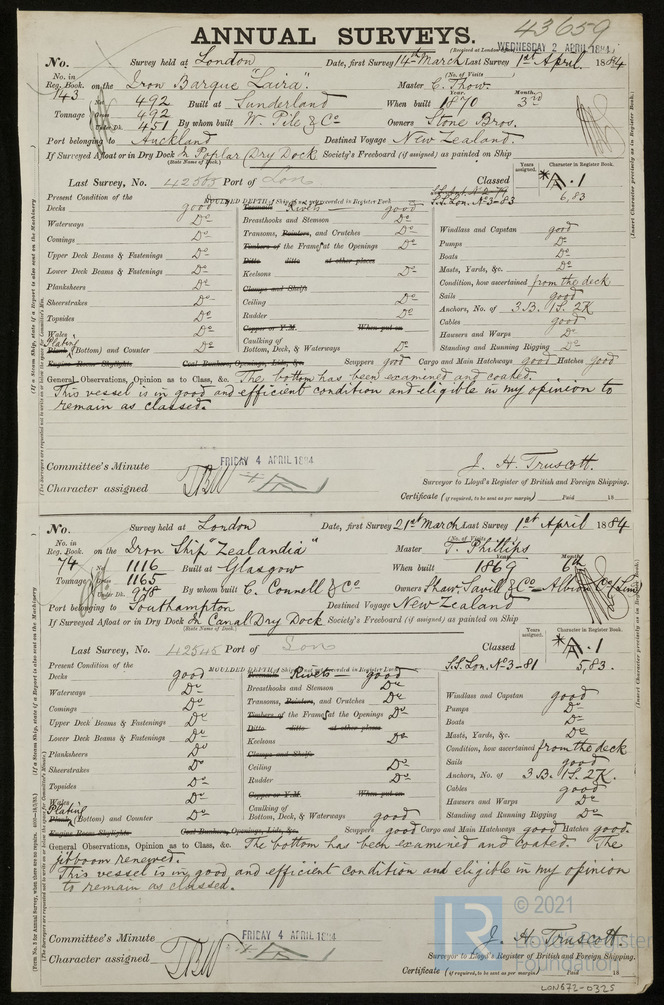 43659
ANNUAL SURVEYS.
(Received at London Office WEDNESDAY 2 APRIL 1884
No. Survey held at London Date, first Survey 14th March Last Survey 1st April 1884
No. in Reg. Book. on the Iron Barque "Laira" Master C. Thow. (No. of Visits)
143 Net 492 Built at Sunderland When built Year. 1870 Month. 3rd
Tonnage Gross 492
Under Dk. 451 By whom built W. Pile & Co Owners Stone Bros.
Port belonging to Auckland Destined Voyage New Zealand.
If Surveyed Afloat or in Dry Dock In Poplar Dry Dock Society's Freeboard (if assigned) as painted on Ship
(State Name of Dock.)
Last Survey, No. 42505 Port of Lon Classed Years assigned. Character in Register Book.
S.S. Lon. No 3-83 *A.1 6,83
Present Condition of the MOULDED DEPTH of Ship as recorded in Register Book
Decks good Rivets good
Waterways Do Breasthooks and Stemson Do
Comings Do Transoms, Pointers, and Crutches Do Windlass and Capstan good
Upper Deck Beams & Fastenings Do Timbers of the Frames at the Openings Do Pumps Do
Ditto ditto at other places Boats Do
Lower Deck Beams & Fastenings Do Keelsons Do Masts, Yards, &c. Do
Planksheers Do Clamps and Shelfs Condition, how ascertained from the deck
Sheerstrakes Do Ceiling Do Sails good
Topsides Do Rudder Do Anchors, No. of 3 B. 1 S. 2 K
Wales Do Copper or Y.M. When put on Cables good
Plating Plank (Bottom) and Counter Do Caulking of Bottom, Deck, & Waterways Do Hawsers and Warps Do
Standing and Running Rigging Do
Engine Room Skylights Coal Bunkers, Openings, Lids, &c. Scuppers good Cargo and Main Hatchways good Hatches good
General Observations, Opinion as to Class, &c. The bottom has been examined and coated.
This vessel is in good and efficient condition and eligible in my opinion to
remain as classed.
Committee's Minute FRIDAY 4 APRIL 1884 J. H. Truscott.
Character assigned Surveyor to Lloyd's Register of British and Foreign Shipping.
Certificate (if required, to be sent as per margin) Paid 18
No. Survey held at London Date, first Survey 21st March Last Survey 1st April 1884
No. in Reg. Book. on the Iron Ship "Zealandia" Master T. Phillips (No. of Visits)
74 Net 1116 Built at Glasgow When built Year. 1869 Month. 6th
Tonnage Gross 1165
Under Dk. 978 By whom built C. Connell & Co Owners Shaw. Savill & Co - Albion Co (Lim)
Port belonging to Southampton Destined Voyage New Zealand
If Surveyed Afloat or in Dry Dock In Canal Dry Dock Society's Freeboard (if assigned) as painted on Ship
(State Name of Dock.)
Last Survey, No. 42545 Port of Lon Classed Years assigned. Character in Register Book.
S.S. Lon. No 3-81 *A.1 5,83.
Present Condition of the MOULDED DEPTH of Ship as recorded in Register Book
Decks good Rivets good
Waterways Do Breasthooks and Stemson Do Windlass and Capstan good
Comings Do Transoms, Pointers, and Crutches Do Pumps Do
Upper Deck Beams & Fastenings Do Timbers of the Frames at the Openings Do Boats Do
Lower Deck Beams & Fastenings Do Ditto ditto at other places Masts, Yards, &c. Do
Keelsons Do Condition, how ascertained from the deck
Planksheers Do Clamps and Shelfs Sails good
Sheerstrakes Do Ceiling Do Anchors, No. of 3 B. 1 S. 2 K.
Topsides Do Rudder Do Cables good
Wales Do Copper or Y.M. When put on Hawsers and Warps Do
Plating Plank (Bottom) and Counter Do Caulking of Bottom, Deck, & Waterways good Standing and Running Rigging Do
Engine Room Skylights Coal Bunkers, Openings, Lids, &c. Scuppers good Cargo and Main Hatchways good Hatches good.
General Observations, Opinion as to Class, &c. The bottom has been examined and coated. The
jibboom renewed.
This vessel is in good and efficient condition and eligible in my opinion
to remain as classed.
© 2021
Lloyd's Register
Foundation
Committee's Minute FRIDAY 4 APRIL 1884 J. H. Truscott.
Character assigned Surveyor to Lloyd's Register of British and Foreign Shipping.
Certificate (if required, to be sent as per margin) Paid 18
LON672-0325